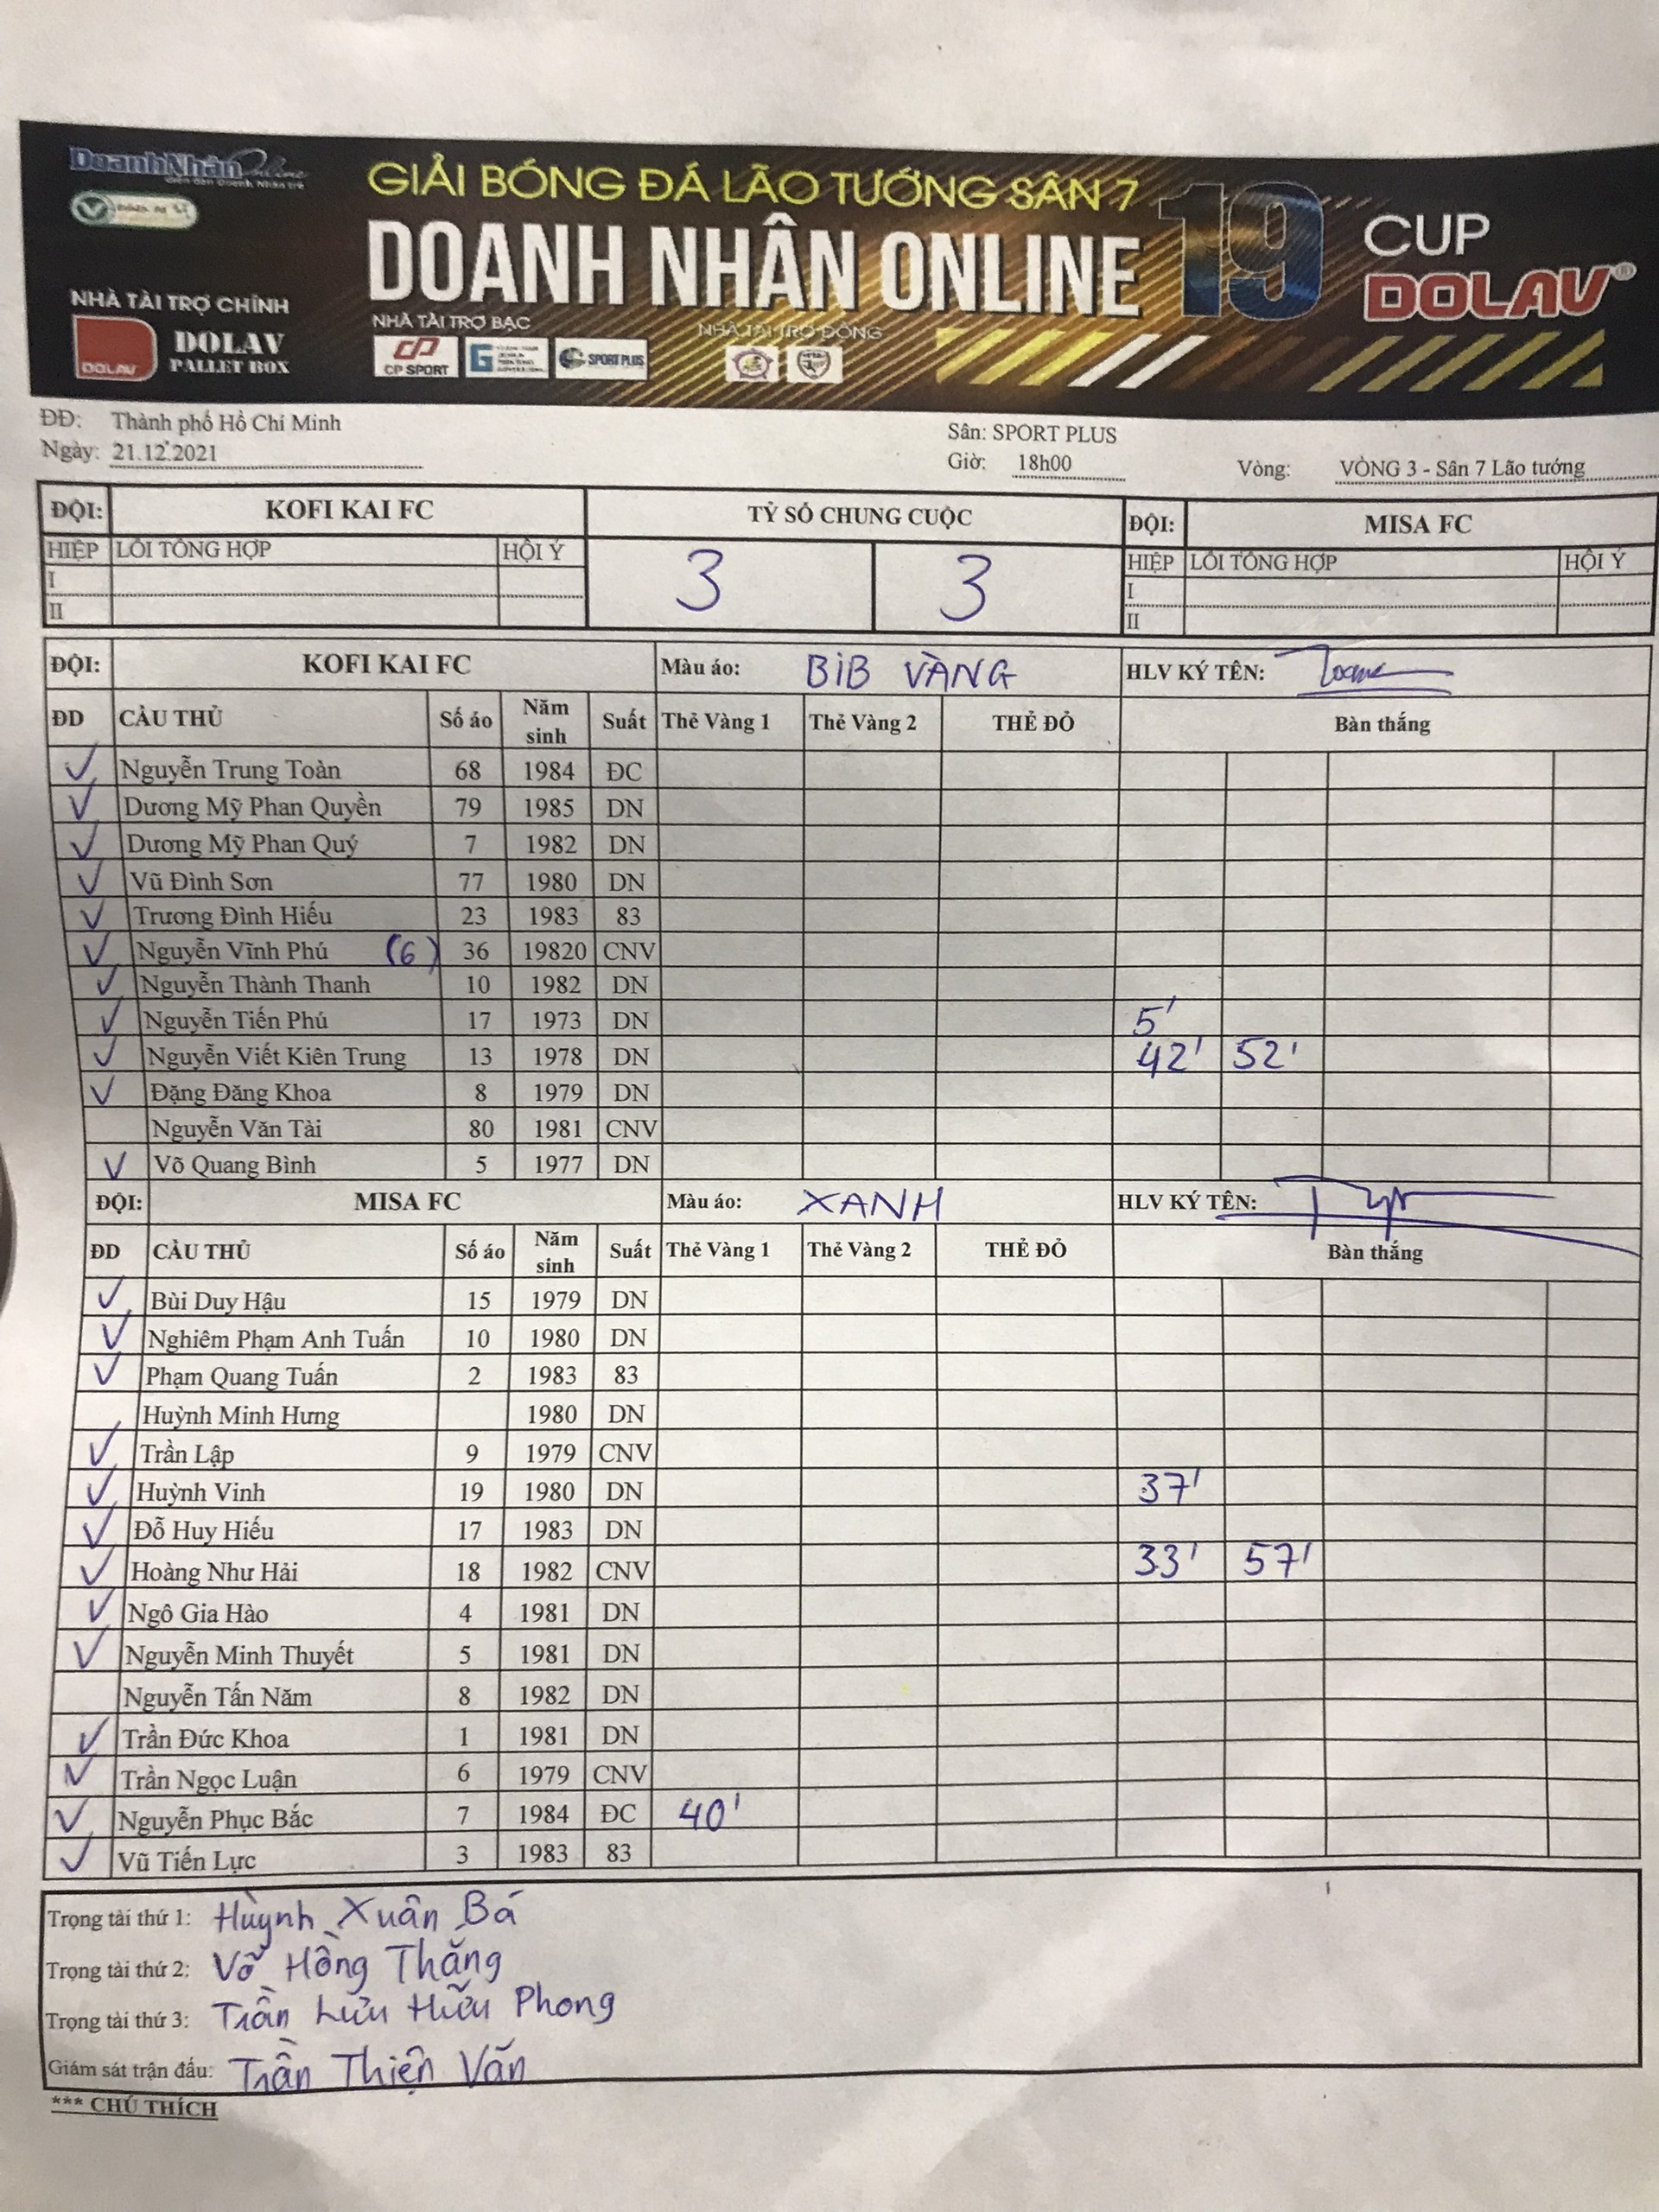 DoanhNhân Online
GIẢI BÓNG ĐÁ LÃO TƯỚNG SÂN 7
DOANH NHÂN ONLINE 19
CUP
DOLAV®
NHÀ TÀI TRỢ CHÍNH
DOLAV
DOLAV
PALLET BOX
NHÀ TÀI TRỢ BẠC
CP SPORT
SPORT PLUS
NHÀ TÀI TRỢ ĐỒNG
ĐĐ: Thành phố Hồ Chí Minh
Sân: SPORT PLUS
Ngày: 21.12.2021
Giờ: 18h00
Vòng: VÒNG 3 - Sân 7 Lão tướng
ĐỘI: KOFI KAI FC TỶ SỐ CHUNG CUỘC ĐỘI: MISA FC
HIỆP LỖI TỔNG HỢP HỘI Ý 3 3 HIỆP LỖI TỔNG HỢP HỘI Ý
I I
II II
ĐỘI: KOFI KAI FC Màu áo: BIB VÀNG HLV KÝ TÊN:
ĐD CẦU THỦ Số áo Năm sinh Suất Thẻ Vàng 1 Thẻ Vàng 2 THẺ ĐỎ Bàn thắng
Nguyễn Trung Toàn 68 1984 ĐC
Dương Mỹ Phan Quyền 79 1985 DN
Dương Mỹ Phan Quý 7 1982 DN
Vũ Đình Sơn 77 1980 DN
Trương Đình Hiếu 23 1983 83
Nguyễn Vĩnh Phú (6) 36 19820 CNV
Nguyễn Thành Thanh 10 1982 DN
Nguyễn Tiến Phú 17 1973 DN 5'
Nguyễn Viết Kiên Trung 13 1978 DN 42' 52'
Đặng Đăng Khoa 8 1979 DN
Nguyễn Văn Tài 80 1981 CNV
Võ Quang Bình 5 1977 DN
ĐỘI: MISA FC Màu áo: XANH HLV KÝ TÊN:
ĐD CẦU THỦ Số áo Năm sinh Suất Thẻ Vàng 1 Thẻ Vàng 2 THẺ ĐỎ Bàn thắng
Bùi Duy Hậu 15 1979 DN
Nghiêm Phạm Anh Tuấn 10 1980 DN
Phạm Quang Tuấn 2 1983 83
Huỳnh Minh Hưng 1980 DN
Trần Lập 9 1979 CNV
Huỳnh Vinh 19 1980 DN 37'
Đỗ Huy Hiếu 17 1983 DN
Hoàng Như Hải 18 1982 CNV 33' 57'
Ngô Gia Hào 4 1981 DN
Nguyễn Minh Thuyết 5 1981 DN
Nguyễn Tấn Năm 8 1982 DN
Trần Đức Khoa 1 1981 DN
Trần Ngọc Luận 6 1979 CNV
Nguyễn Phục Bắc 7 1984 ĐC 40'
Vũ Tiến Lực 3 1983 83
Trọng tài thứ 1: Huỳnh Xuân Bá
Trọng tài thứ 2: Võ Hồng Thăng
Trọng tài thứ 3: Trần Lưu Hữu Phong
Giám sát trận đấu: Trần Thiện Văn
*** CHÚ THÍCH